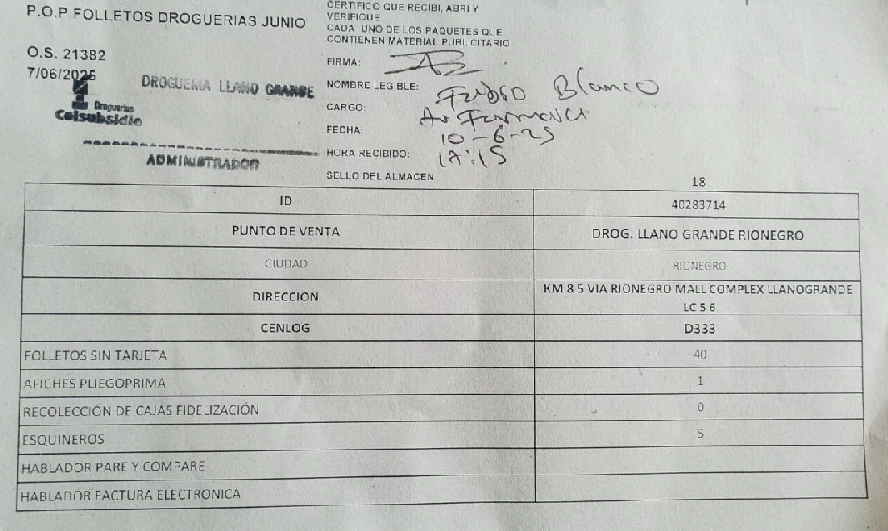 P.O.P FOLLETOS DROGUERIAS JUNIO
O.S. 21382
7/06/2025
DROGUERIA LLANO GRANDE
Droguerias
Colsubsidio
ADMINISTRADOR
CERTIFICO QUE RECIBI, ABRI Y
VERIFIQUE
CADA UNO DE LOS PAQUETES QUE
CONTIENEN MATERIAL PUBLICITARIO
FIRMA:
NOMBRE LEGIBLE: Blanco
CARGO:
FECHA: 10-6-25
HORA RECIBIDO:
SELLO DEL ALMACEN
18
ID 40283714
PUNTO DE VENTA DROG. LLANO GRANDE RIONEGRO
CIUDAD RIONEGRO
DIRECCION KM 8 5 VIA RIONEGRO MALL COMPLEX LLANOGRANDE
LC 5 6
CENLOG D333
FOLLETOS SIN TARJETA 40
AFICHES PLIEGOPRIMA 1
RECOLECCIÓN DE CAJAS FIDELIZACIÓN 0
ESQUINEROS 5
HABLADOR PARE Y COMPARE
HABLADOR FACTURA ELECTRONICA